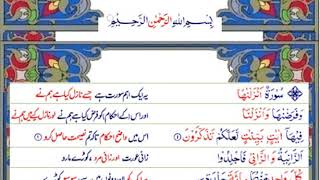 بِسْمِ اللهِ الرَّحْمٰنِ الرَّحِيْمِ
سُوْرَةٌ اَنْزَلْنٰهَا
یہ ایک اہم سورت ہے جسے نازل کیا ہے ہم نے
وَفَرَضْنٰهَا وَاَنْزَلْنَا
اور اس کے احکام کو فرض کیا ہے
فِيْهَآ اٰيٰتٍۭ بَيِّنٰتٍ لَّعَلَّكُمْ تَذَكَّرُوْنَ ①
اس میں واضح احکام تاکہ تم نصیحت حاصل کرو ①
اَلزَّانِيَةُ وَ الزَّانِيْ فَاجْلِدُوْا
زانی عورت اور زانی مرد کو کوڑے مارو
كُلَّ وَاحِدٍ